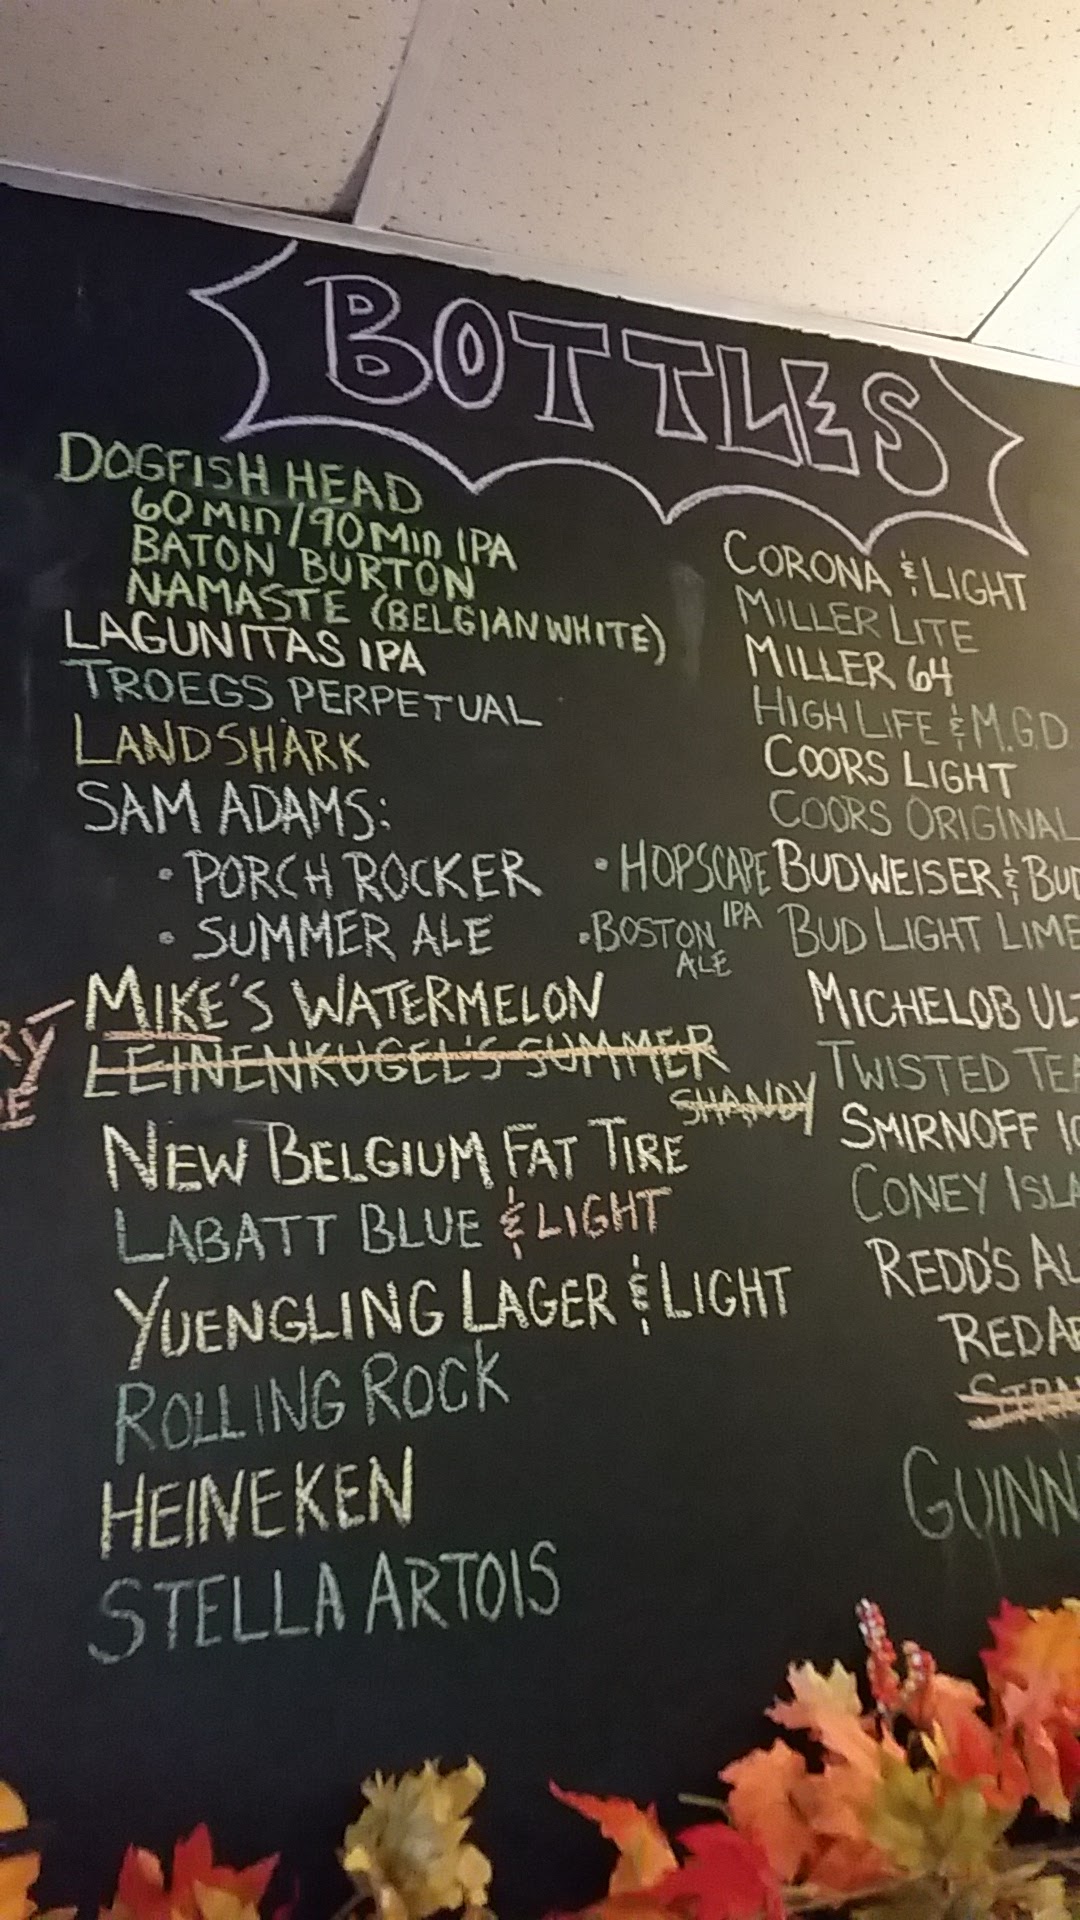 BOTTLES
DOGFISH HEAD
60 Min/90 Min IPA
BATON BURTON
NAMASTE (BELGIAN WHITE)
LAGUNITAS IPA
TROEGS PERPETUAL
LANDSHARK
SAM ADAMS:
• PORCH ROCKER
• SUMMER ALE
• HOPSCAPE
IPA
• BOSTON
ALE
MIKE'S WATERMELON
LEINENKUGEL'S SUMMER
SHANDY
NEW BELGIUM FAT TIRE
LABATT BLUE & LIGHT
YUENGLING LAGER & LIGHT
ROLLING ROCK
HEINEKEN
STELLA ARTOIS
CORONA & LIGHT
MILLER LITE
MILLER 64
HIGH LIFE & M.G.D
COORS LIGHT
COORS ORIGINAL
BUDWEISER & BUD
BUD LIGHT LIME
MICHELOB ULT
TWISTED TEA
SMIRNOFF IC
CONEY ISLA
REDD'S AL
RED AP
GUINN